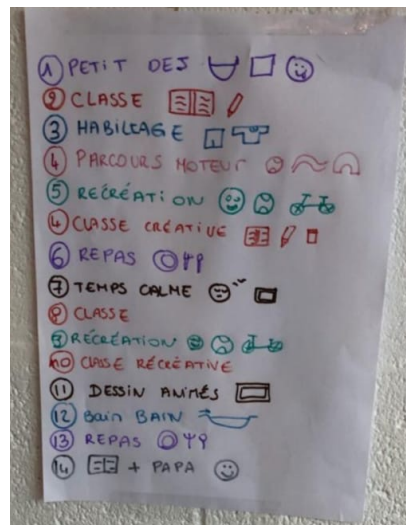 1 PETIT DEJ
2 CLASSE
3 HABILLAGE
4 PARCOURS MOTEUR
5 RECRÉATION
4 CLASSE CRÉATIVE
6 REPAS
7 TEMPS CALME
8 CLASSE
9 RÉCRÉATION
10 CLASSE RÉCRÉATIVE
11 DESSIN ANIMÉS
12 Bain BAIN
13 REPAS
14 + PAPA